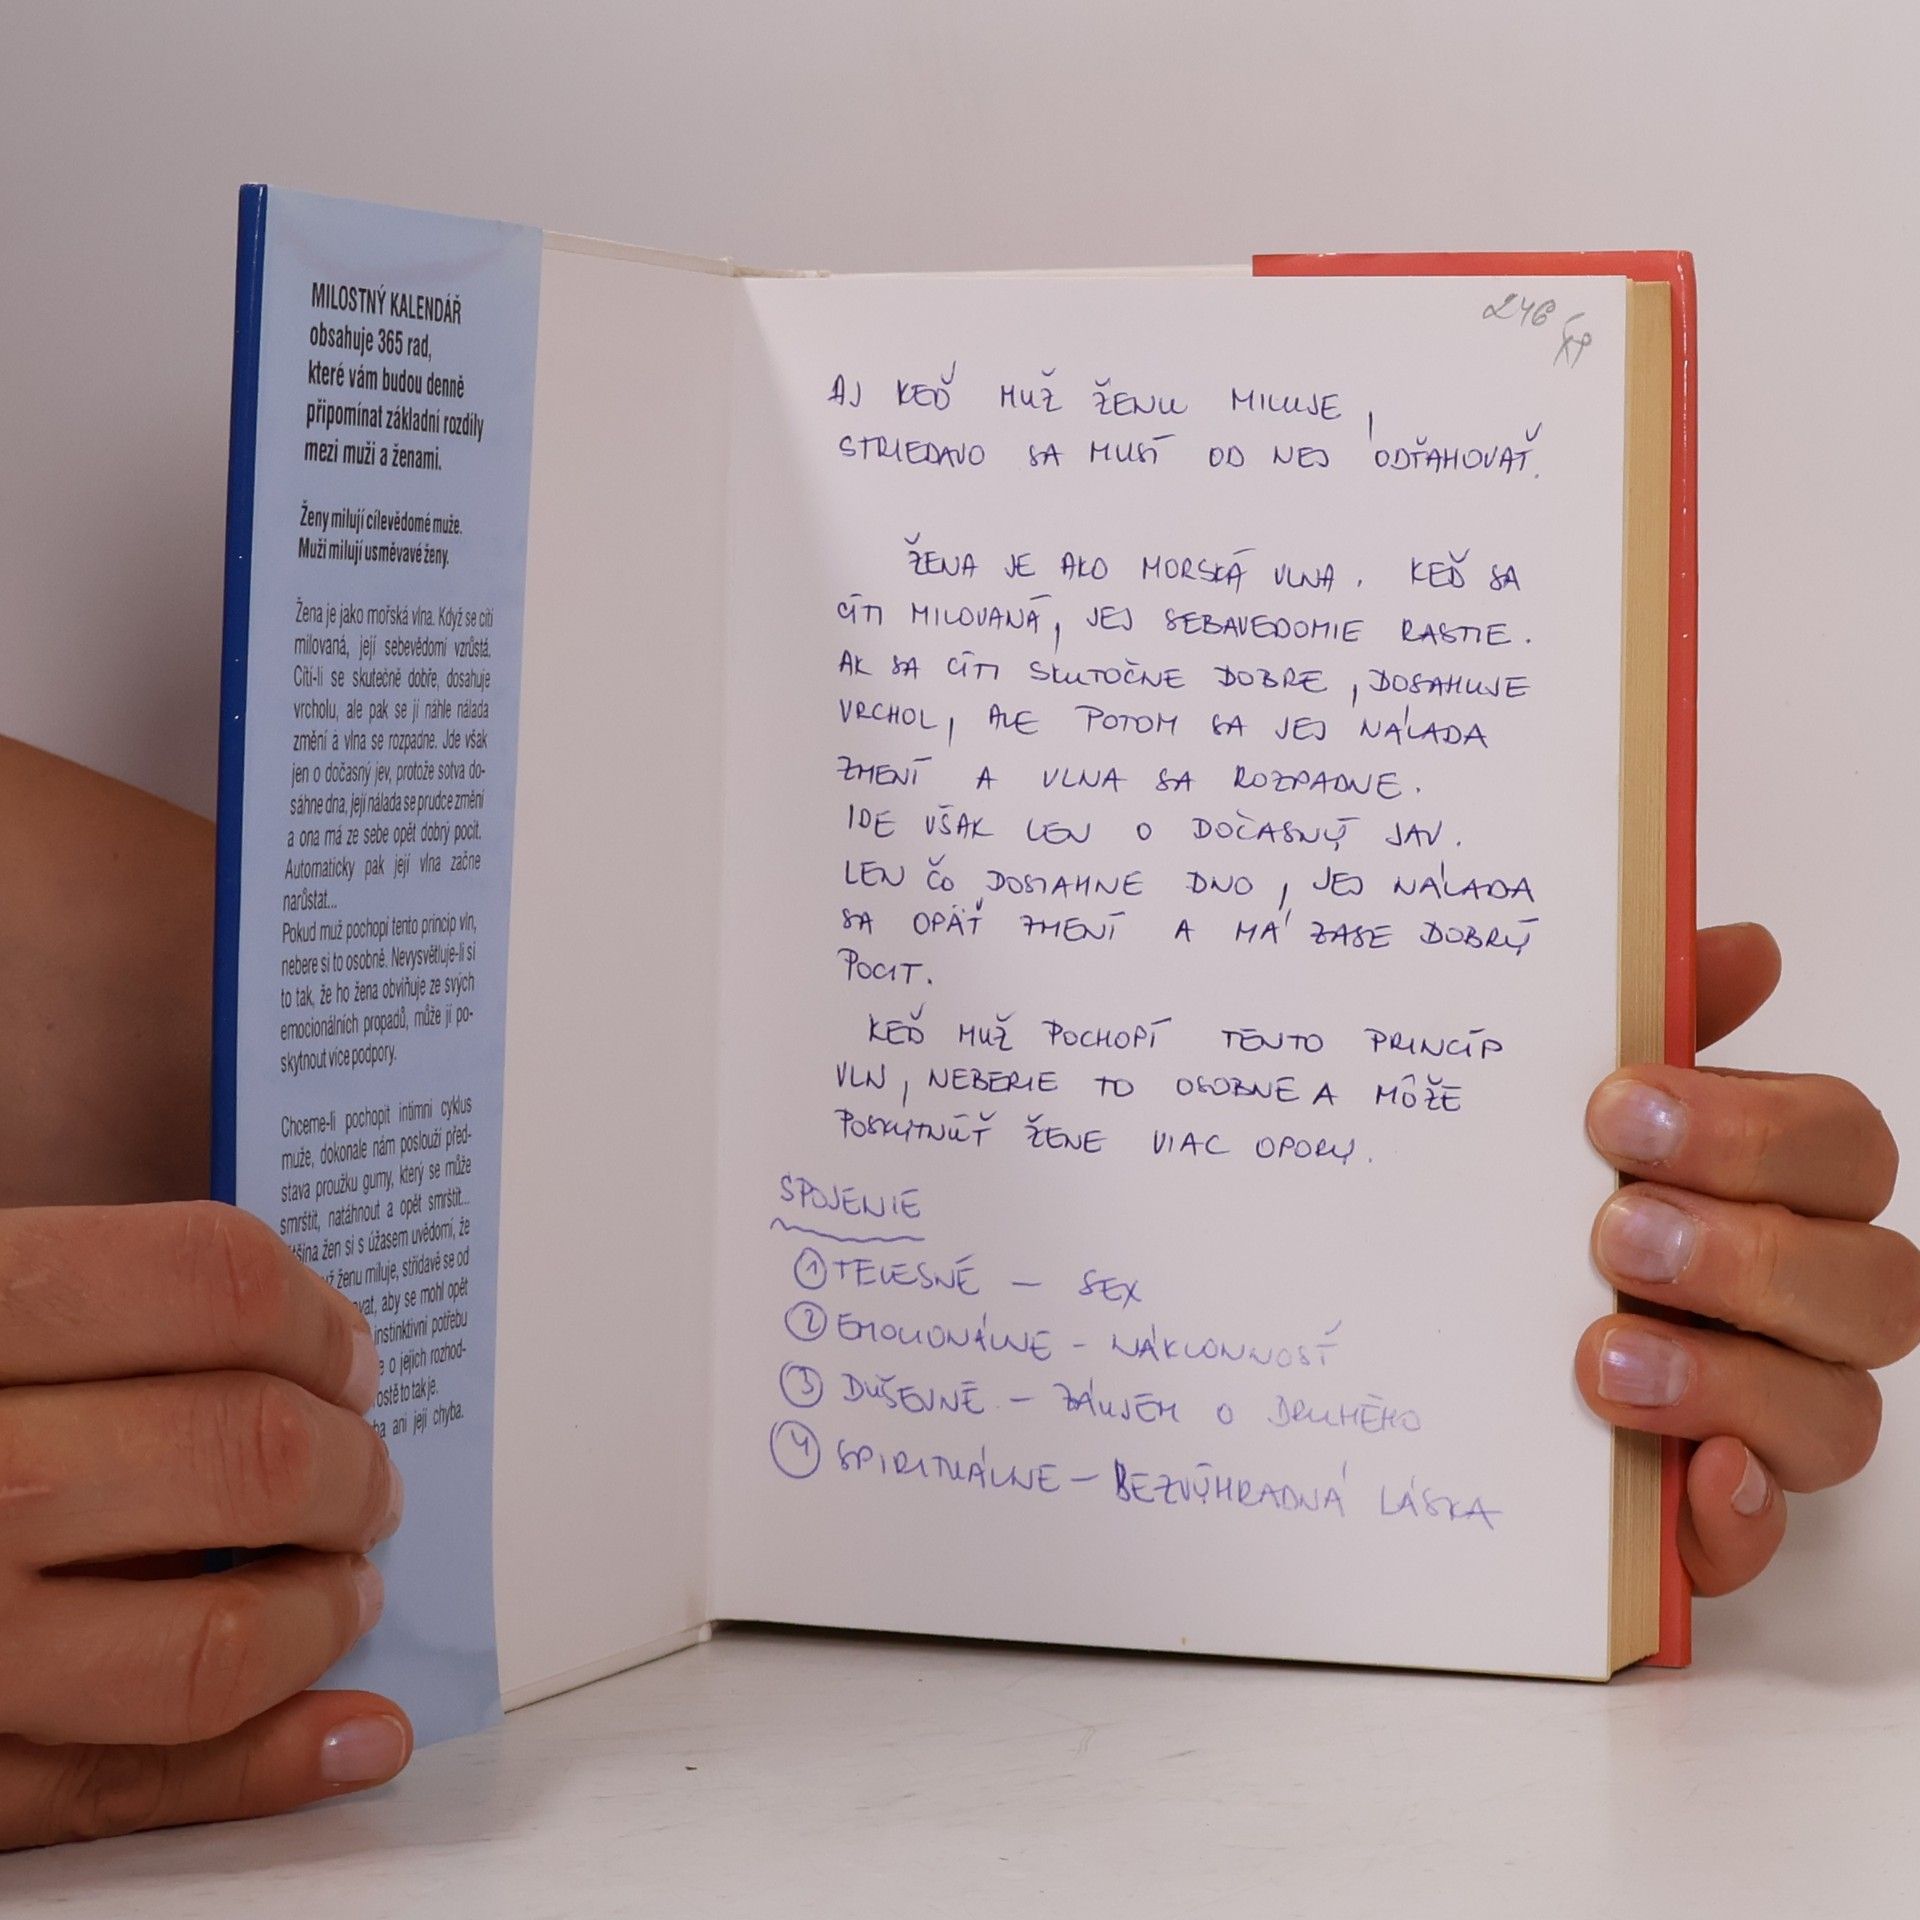 MILOSTNÝ KALENDÁŘ
obsahuje 365 rad,
které vám budou denně
připomínat základní rozdíly
mezi muži a ženami.
Ženy milují cílevědomé muže.
Muži milují usměvavé ženy.
Žena je jako mořská vlna. Když se cítí
milovaná, její sebevědomí vzrůstá.
Cítí-li se skutečně dobře, dosahuje
vrcholu, ale pak se jí náhle nálada
změní a vlna se rozpadne. Jde však
jen o dočasný jev, protože sotva do-
sáhne dna, její nálada se prudce změní
a ona má ze sebe opět dobrý pocit.
Automaticky pak její vlna začne
narůstat...
Pokud muž pochopí tento princip vln,
nebere si to osobně. Nevysvětluje-li si
to tak, že ho žena obviňuje ze svých
emocionálních propadů, může jí po-
skytnout více podpory.
Chceme-li pochopit intimní cyklus
muže, dokonale nám poslouží před-
stava proužku gumy, který se může
smrštit, natáhnout a opět smrštit...
žen si s úžasem uvědomí, že
ženu miluje, střídavě se od
aby se mohl opět
instinktivní potřebu
o jejich rozhod-
to tak je.
ani její chyba.
246
AJ KEĎ MUŽ ŽENU MILUJE,
STRIEDAVO SA MUSÍ OD NEJ ODŤAHOVAŤ.
ŽENA JE AKO MORSKÁ VLNA. KEĎ SA
CÍTI MILOVANÁ, JEJ SEBAVEDOMIE RASTIE.
AK SA CÍTI SKUTOČNE DOBRE, DOSAHUJE
VRCHOL, ALE POTOM SA JEJ NÁLADA
ZMENÍ A VLNA SA ROZPADNE.
IDE VŠAK LEN O DOČASNÝ JAV.
LEN ČO DOSIAHNE DNO, JEJ NÁLADA
SA OPÄŤ ZMENÍ A MÁ ZASE DOBRÝ
POCIT.
KEĎ MUŽ POCHOPÍ TENTO PRINCÍP
VLN, NEBERIE TO OSOBNE A MÔŽE
POSKYTNÚŤ ŽENE VIAC OPORY.
SPOJENIE
① TELESNÉ – SEX
② EMOCIONÁLNE – NÁKLONNOSŤ
③ DUŠEVNÉ – ZÁUJEM O DRUHÉHO
④ SPIRITUÁLNE – BEZVÝHRADNÁ LÁSKA